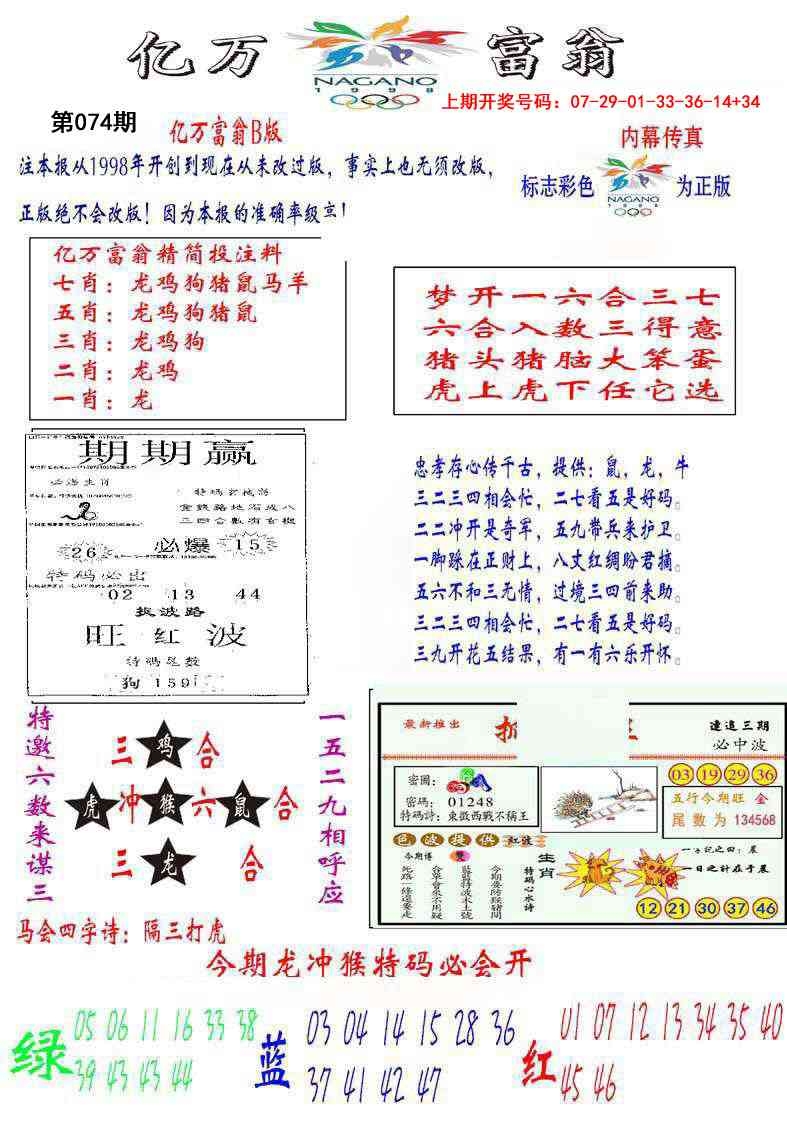 亿万 富翁
NAGANO
1998
上期开奖号码：07-29-01-33-36-14+34
第074期
亿万富翁B版
内幕传真
注本报从1998年开创到现在从未改过版，事实上也无须改版，
标志彩色 NAGANO 1998 为正版
正版绝不会改版！因为本报的准确率级高！
亿万富翁精简投注料
七肖：龙鸡狗猪鼠马羊
五肖：龙鸡狗猪鼠
三肖：龙鸡狗
二肖：龙鸡
一肖：龙
梦开一六合三七
六合入数三得意
猪头猪脑大笨蛋
虎上虎下任它选
期期赢
必爆生肖
特码玄机诗
三四合数有玄机
26 必爆 15
特码必出
02 13 44
捉波路
旺 红 波
特码尾数
狗 159
忠孝存心传千古，提供：鼠，龙，牛
三二三四相会忙，二七看五是好码。
二二冲开是奇军，五九带兵来护卫。
一脚跺在正财上，八丈红绸盼君摘。
五六不和三无情，过境三四前来助。
三二三四相会忙，二七看五是好码。
三九开花五结果，有一有六乐开怀。
特邀六数来谋三
三 鸡 合
虎 冲 猴 六 鼠 合
三 龙 合
一五二九相呼应
最新推出
連追三期
必中波
密圖：
密碼： 01248
特碼詩：東徵西戰不稱王
03 19 29 36
五行今期旺 金
尾数为 134568
色波提供 红波
今期博 雙
死路一條還要走
合單會來不用疑
今期要防殺豬間
特碼心水诗
生肖
一日之計在于晨
12 21 30 37 46
马会四字诗：隔三打虎
今期龙冲猴特码必会开
绿 05 06 11 16 33 38
39 43 43 44
蓝 03 04 14 15 28 36
37 41 42 47
红 01 07 12 13 34 35 40
45 46